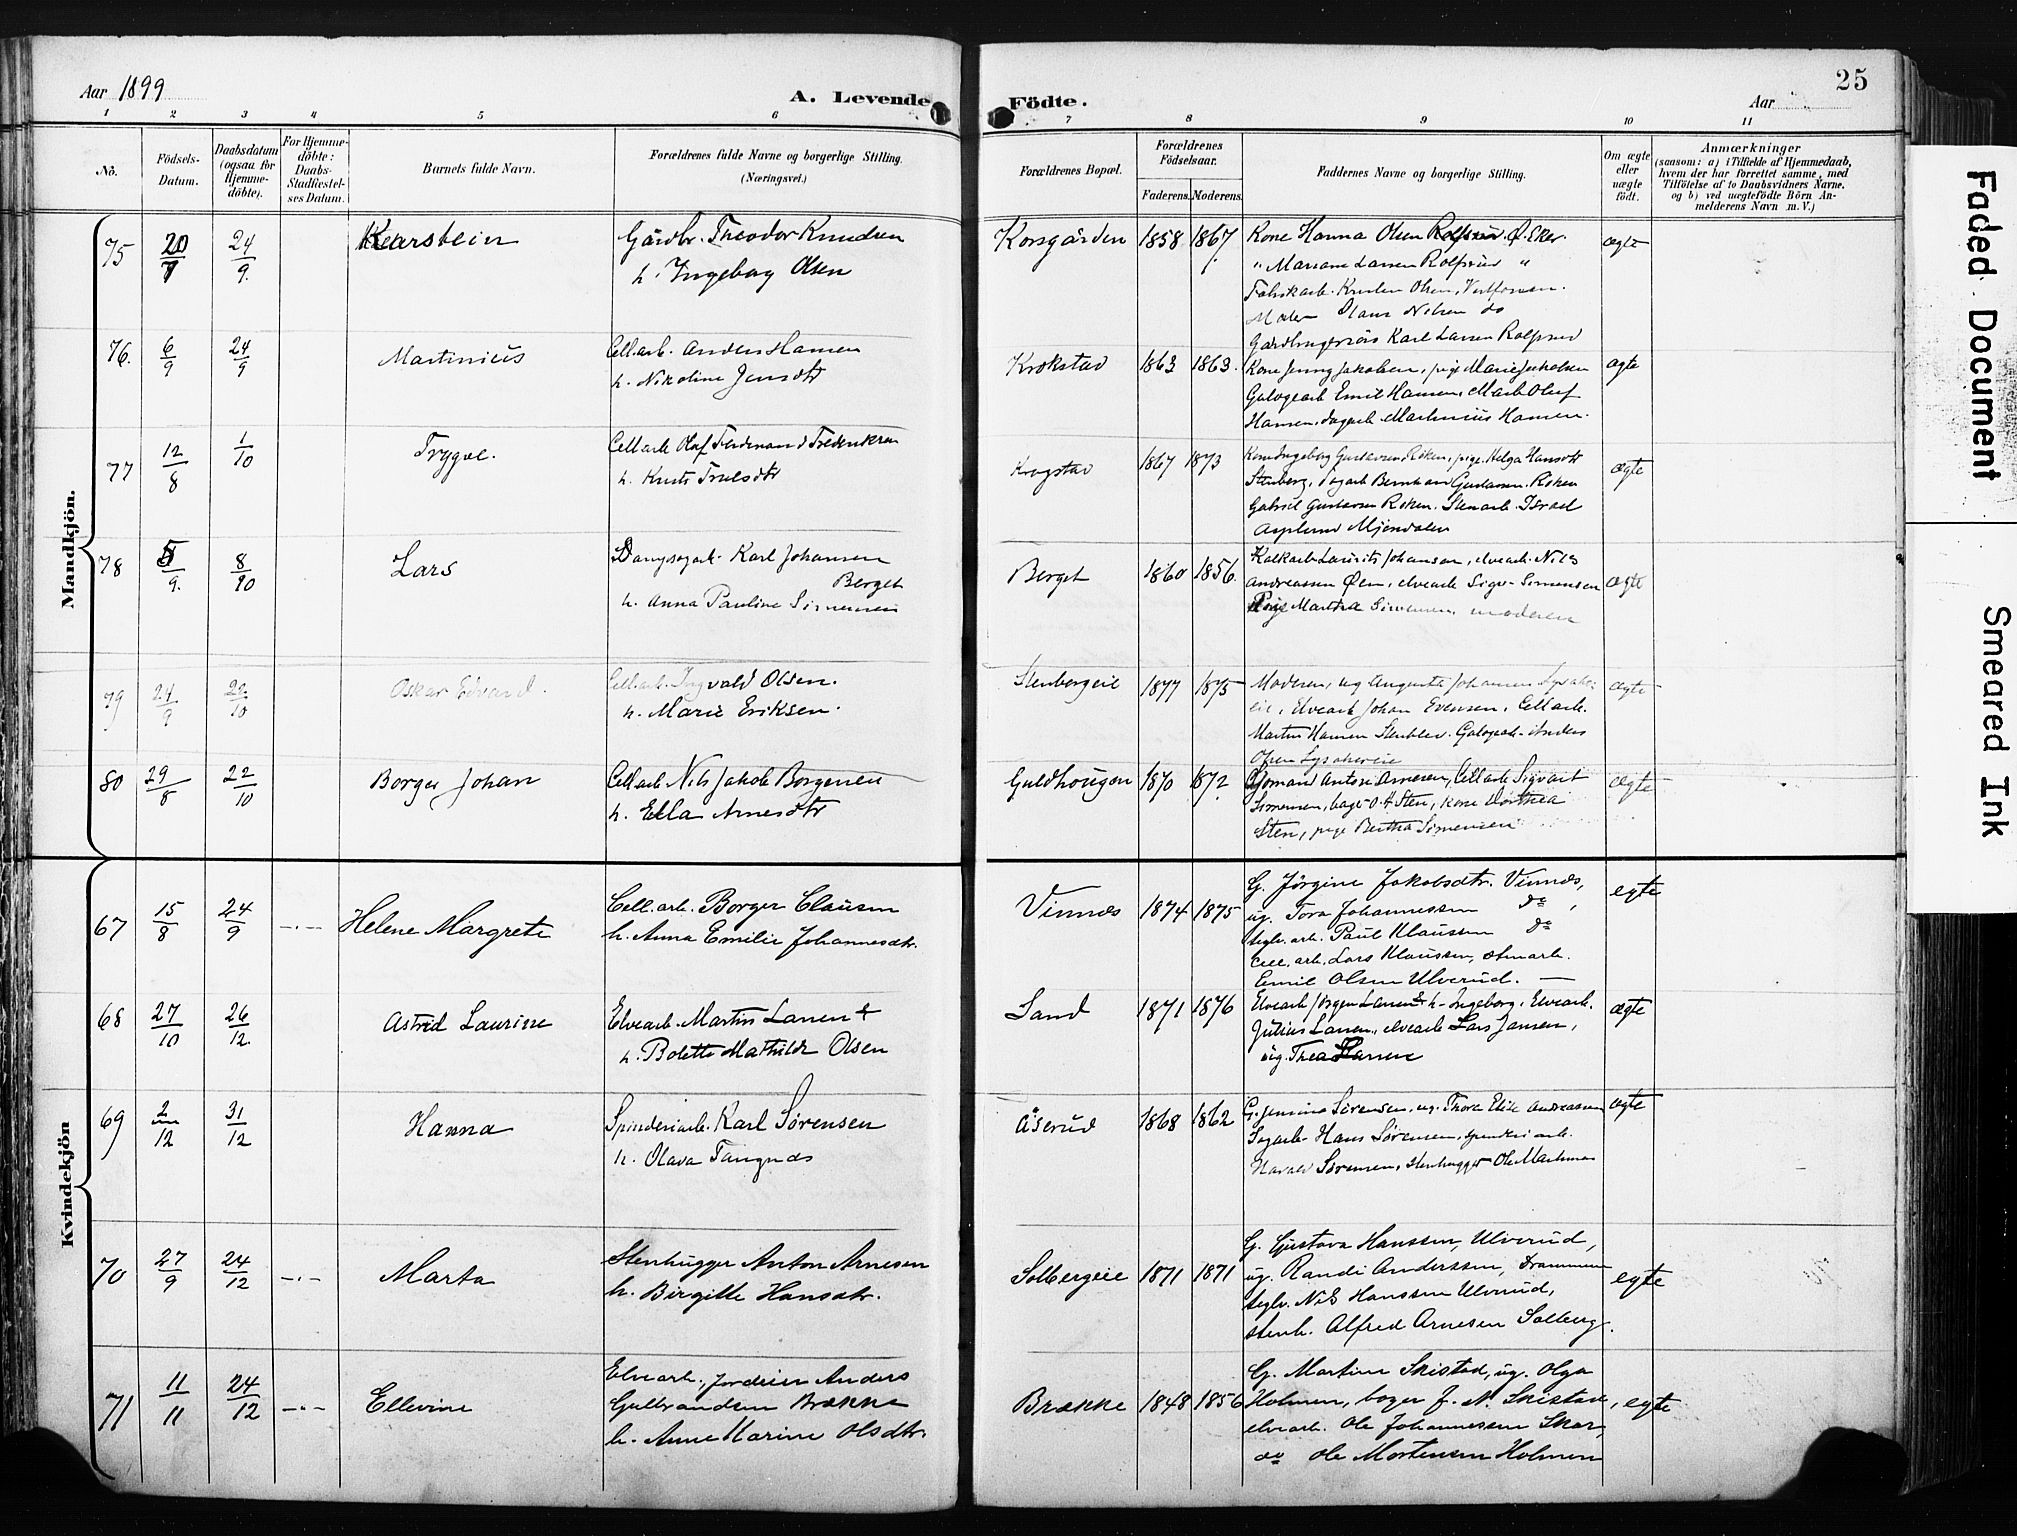 Aar 1899
A. Levende
Födte.
25
Aar
1 2 3 4 5 6 7 8 9 10 11
No.
Födsels-Datum.
Daabsdatum (ogsaa for Hjemmedöbte).
For Hjemmedöbte: Daabs-Stadfæstelses Datum.
Barnets fulde Navn.
Forældrenes fulde Navne og borgerlige Stilling.
(Næringsvei.)
Forældrenes Bopæl.
Forældrenes Födselsaar.
Faderens. Moderens.
Faddernes Navne og borgerlige Stilling.
Om ægte eller uægte födt.
Anmærkninger
(saasom: a) i Tilfælde af Hjemmedaab, hvem der har forrettet samme, med Tilföielse af to Daabsvidners Navne, og b) ved uægtefödte Börn Anmelderens Navn m. V.)
Mandkjön.
75 20/7 24/9 Karstein
Gårdbr. Theodor Knudsen
h. Ingeborg Olsen
Korsgården 1858 1867
Kone Hanna Olsen Rolfsrud Ø. Eker.
" Mariane Larsen Rolfsrud "
Fabrikarb. Knut Olsen, Vestfossen.
Maler Nilsen do
Karl Larsen Rolfsrud
ægte
76. 6/9 24/9 Martinius
Cell.arb. Anders Hansen
h. Nikoline Jensdtr
Krokstad 1863 1863.
Kone Jenny Jakobsen, pige Marie Jakobsen
Galogearb Emil Hansen, Oluf
Hansen, dagarb Martinius Hansen.
ægte
77 12/8 1/10 Trygve.
Cellarb Olaf Ferdinand Fredriksen
h. Trulsdtr
Krogstad 1867 1873
Kone Ingeborg Gustavsen Röken, pige Helga Hansdtr
Stenberg, dagarb Bernhard Gustavsen Röken
Gabriel Gustavsen Röken. Stenarb. Israel
Asplund Mjöndalen
ægte
78 5/9. 8/10 Lars
Karl Johansen
Berget
h. Anna Pauline Simensen
Berget 1860 1856.
Kalkarb Laurits Johansen, elvearb. Nils
Andreassen Øen, elvearb Sigv. Simensen
Pige Martha Simensen, moderen
ægte
79 24/9 22/10 Oskar Edvard.
Cellarb. Ingvald Olsen.
h. Marie Eriksen.
Stenbergeie 1877 1875
Moderen, ug Augusta Johansen Lysaker-
eie, Elvearb Johan Evensen, Cellarb.
Martin Hansen Galogearb. Anders
Olsen Lysakereie
ægte
80 29/8 22/10 Borger Johan
Cellarb Nils Jakob Borgersen
h. Ella Arnesdtr
Guldhougen 1870 1872
Anton Arnesen, Cellarb Sigvart
Simensen, bager O. A Sten, kone Dorthea
Sten, pige Bertha Simensen
ægte
Kvindekjön
67 15/8 24/9 -.- Helene Margrete
Cell.arb. Borger Clausen
h. Anna Emilie Johannesdtr.
Vinnæs 1874 1875
G. Jörgine Jakobsdtr. Vinnæs,
ug. Tora Johannessen do,
teglv.arb. Paul Klaussen do
cell.arb. Lars Klaussen, stenarb.
Emil Olsen Ulverud. —
egte
68 27/10 26/12. Astrid Laurine
Elvearb. Martin Larsen &
h. Bolette Mathilde Olsen
Sand 1871 1876
Elvearb Jörgen Larsen & h. Ingeborg, Elvearb.
Julius Larsen, elvearb Lars Jansen,
ug. Thea Larsen
ægte
69 2/12 31/12 Hanna
Spinderiarb. Karl Sørensen
h. Olava Tangnæs
Åserud 1868 1862
G. Jensine Sørensen, ug. Thora Elise Andreassen
Sagarb Hans Sørensen, spinderiarb.
Harald Sørensen, stenhugger Ole
ægte
70 27/9 24/12 -.- Marta
Stenhugger Anton Arnesen
h. Birgitte Hansdtr.
Solbergeie 1871 1871
G. Gustava Hanssen, Ulverud,
ug. Randi Anderssen, Drammen
teglv. Nils Hanssen Ulverud,
stenh. Alfred Arnesen Solberg.
egte
71 11/11 24/12 -.- Ellevine
Elvearb., Anders
Gulbrandsen Brække
h. Anne Karine Olsdtr.
Brække 1848 1856
G. Martine Skistad, ug. Olga
Holmen, bager J. N. Skistad,
elvearb. Ole Johannessen Skar,
do Ole Mortensen Holmen
egte
Faded Document
Smeared Ink